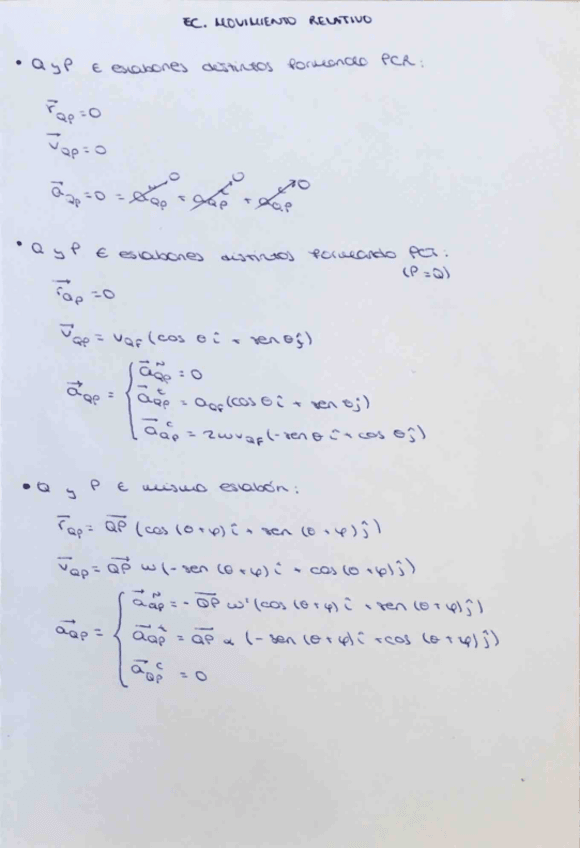 EC. MOVIMIENTO RELATIVO
• Q y P ∈ eslabones distintos formando PCR:
r⃗_QP = 0
v⃗_QP = 0
a⃗_QP = 0 = a_QP^n 0 + a_QP^t 0 + a_QP^c 0
• Q y P ∈ eslabones distintos formando PCT:
(P = Q)
r⃗_QP = 0
v⃗_QP = v_QP (cos θ î + sen θ ĵ)
a⃗_QP = {
a⃗_QP^n = 0
a⃗_QP^t = a_QP (cos θ î + sen θ ĵ)
a⃗_QP^c = 2ωv_QP (-sen θ î + cos θ ĵ)
• Q y P ∈ mismo eslabón:
r⃗_QP = Q̅P̅ (cos (θ + φ) î + sen (θ + φ) ĵ)
v⃗_QP = Q̅P̅ ω (-sen (θ + φ) î + cos (θ + φ) ĵ)
a⃗_QP = {
a⃗_QP^n = - Q̅P̅ ω² (cos (θ + φ) î + sen (θ + φ) ĵ)
a⃗_QP^t = Q̅P̅ α (-sen (θ + φ) î + cos (θ + φ) ĵ)
a⃗_QP^c = 0